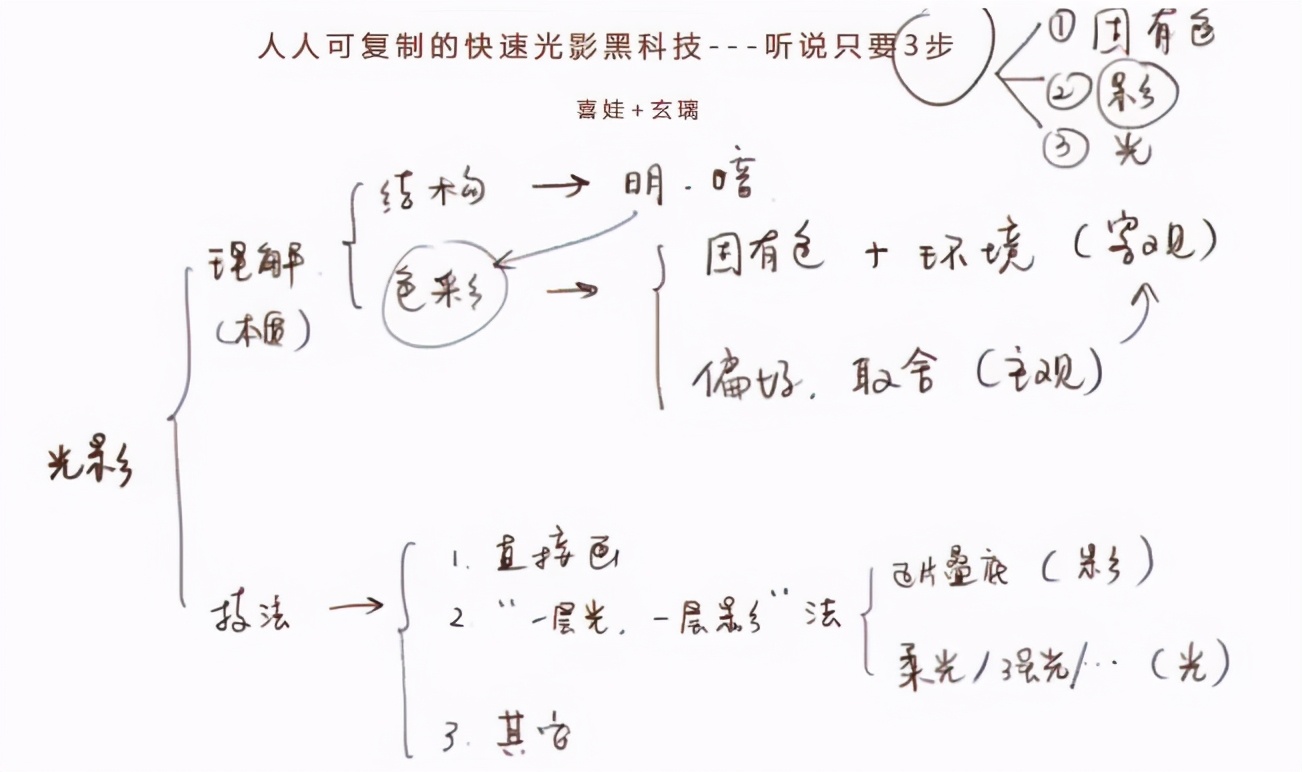 人人可复制的快速光影黑科技---听说只要3步
喜娃+玄璃
① 固有色
② 影
③ 光
结构 → 明.暗
理解
(本质)
色彩 →
固有色 + 环境 (客观)
偏好. 取舍 (主观)
光影
技法 →
1. 直接画
2 “一层光, 一层影”法
3. 其它
正片叠底 (影)
柔光/强光/… (光)